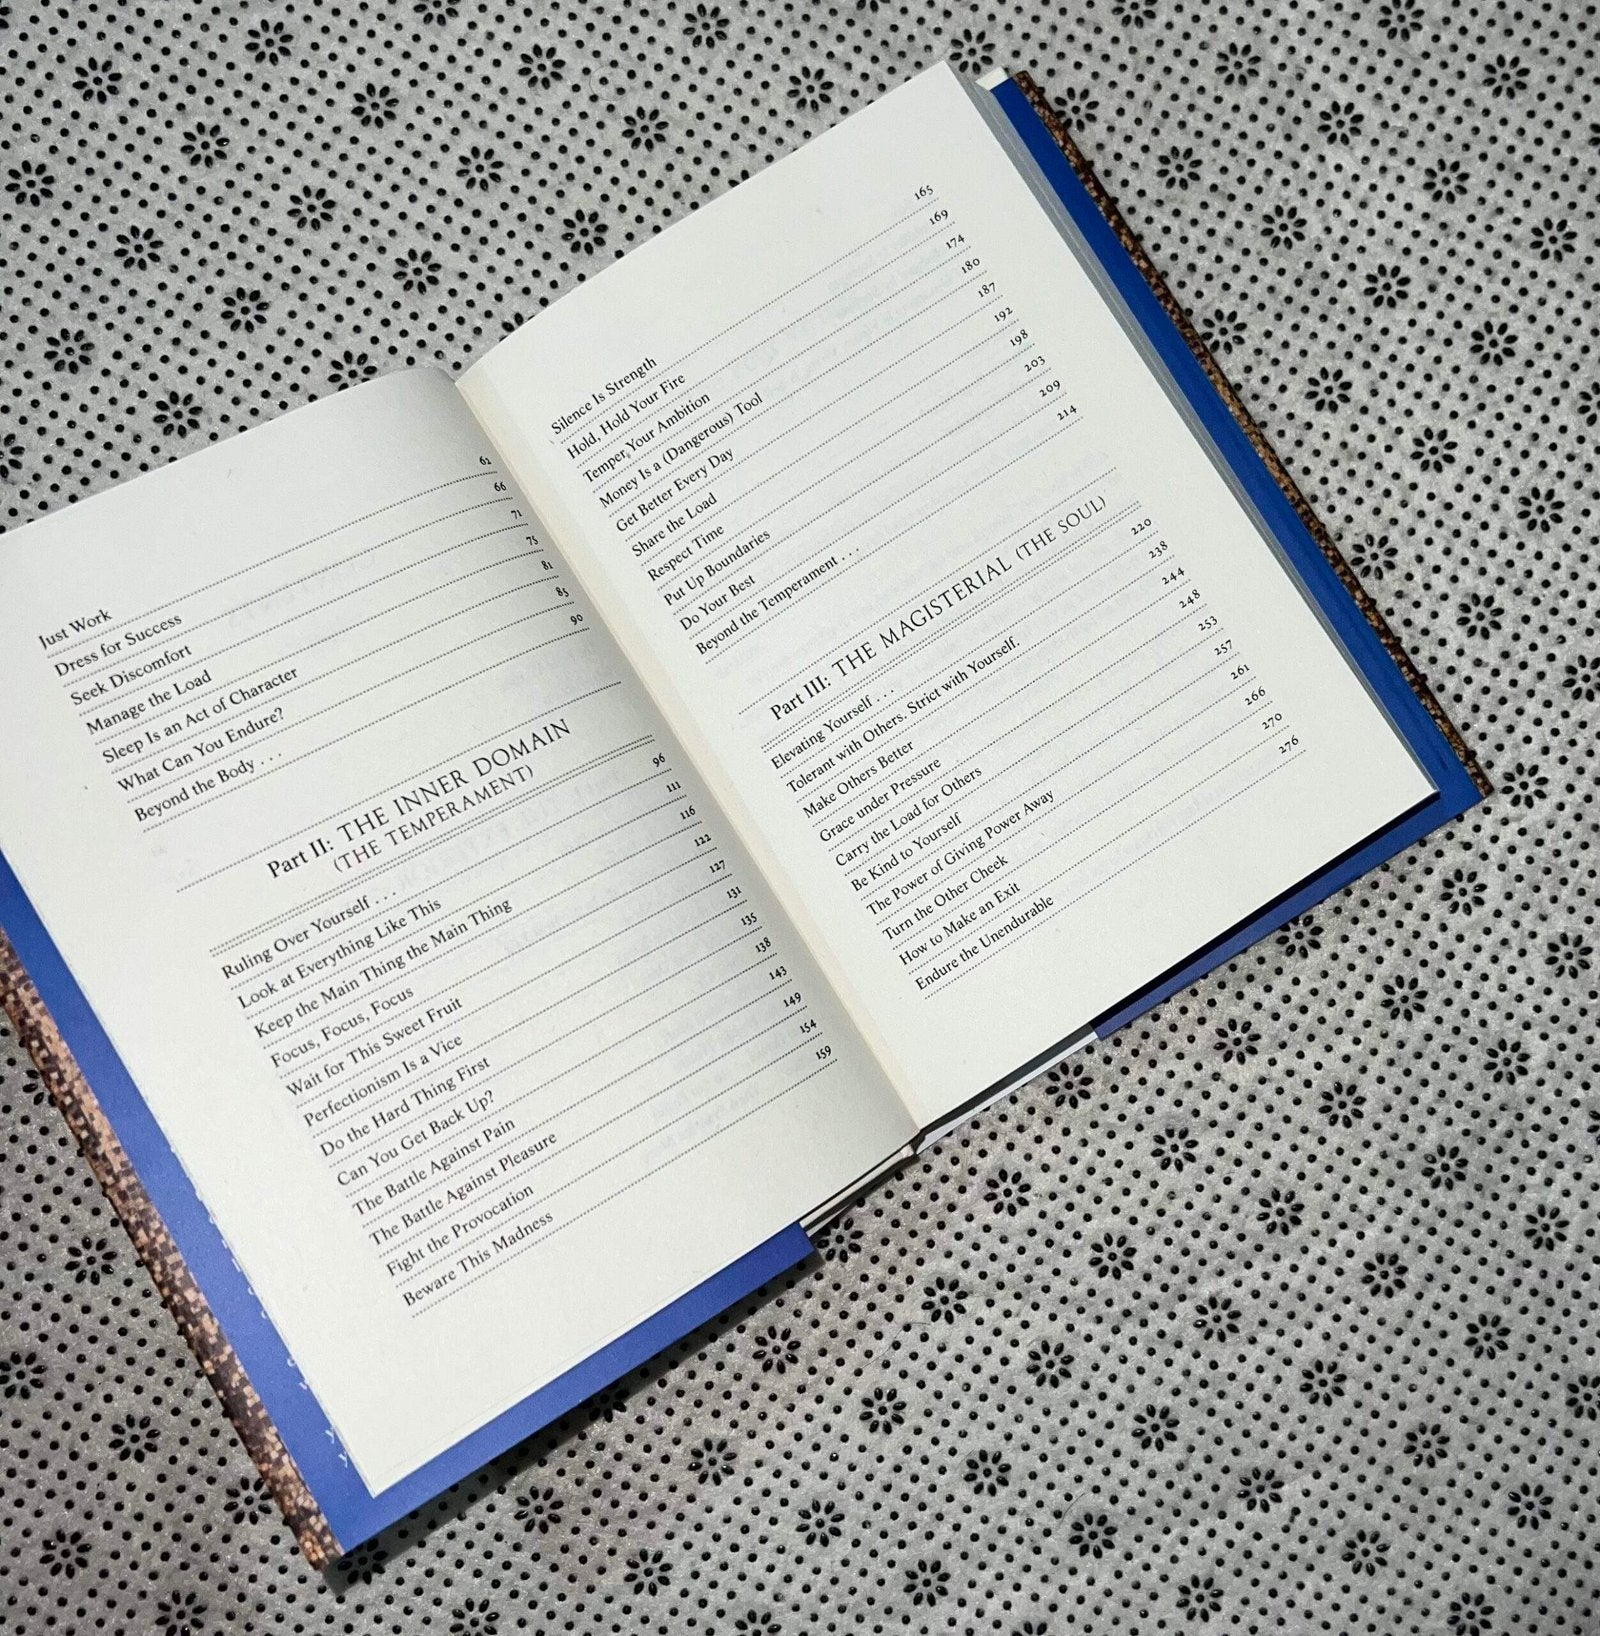 Just Work 62
Dress for Success 66
Seek Discomfort 71
Manage the Load 75
Sleep Is an Act of Character 81
What Can You Endure? 85
Beyond the Body . . . 90
Part II: THE INNER DOMAIN
(THE TEMPERAMENT)
Ruling Over Yourself . . . 96
Look at Everything Like This 111
Keep the Main Thing the Main Thing 116
Focus, Focus, Focus 122
Wait for This Sweet Fruit 127
Perfectionism Is a Vice 131
Do the Hard Thing First 135
Can You Get Back Up? 138
The Battle Against Pain 143
The Battle Against Pleasure 149
Fight the Provocation 154
Beware This Madness 159
Silence Is Strength 165
Hold, Hold Your Fire 169
Temper Your Ambition 174
Money Is a (Dangerous) Tool 180
Get Better Every Day 187
Share the Load 192
Respect Time 198
Put Up Boundaries 203
Do Your Best 209
Beyond the Temperament . . . 214
Part III: THE MAGISTERIAL (THE SOUL)
Elevating Yourself . . . 220
Tolerant with Others. Strict with Yourself. 238
Make Others Better 244
Grace under Pressure 248
Carry the Load for Others 253
Be Kind to Yourself 257
The Power of Giving Power Away 261
Turn the Other Cheek 266
How to Make an Exit 270
Endure the Unendurable 276